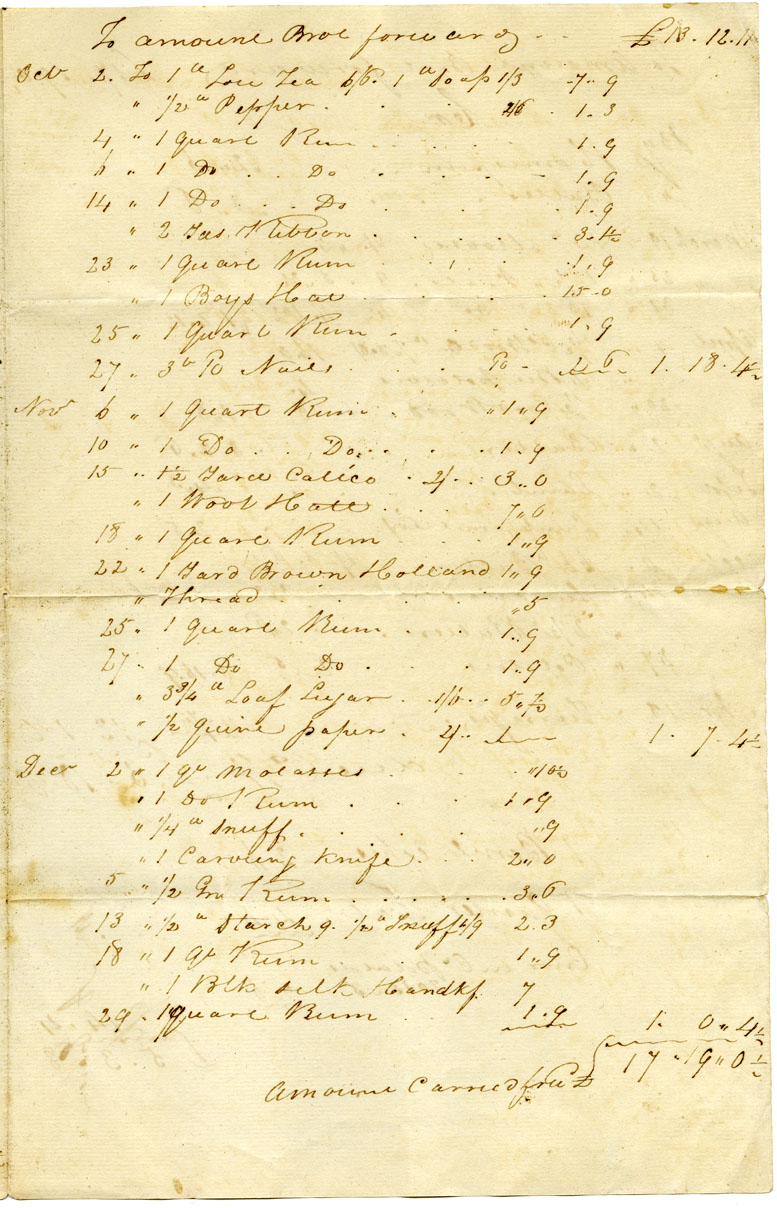 To amount Brot forward £13.12.11
Octr 2. To 1 lb Lou Tea 6/6. 1 lb Soap 1/3 7.. 9
" 1/2 lb Pepper 2/6 1.. 3
4 " 1 Quart Rum 1.. 9
6 " 1 Do Do 1.. 9
14 " 1 Do Do 1.. 9
" 2 Yds. Ribbon 3.. 1½
23 " 1 Quart Rum 1.. 9
" 1 Boys Hat 15.. 0
25 " 1 Quart Rum 1.. 9
27 " 3 lb 10 Nails 10 2.. 6 1. 18. 4½
Novr 6 " 1 Quart Rum " 1 .. 9
10 " 1 Do Do 1.. 9
15 " 1½ Yard Calico 2/ 3.. 0
" 1 Wool Hatt 7.. 6
18 " 1 Quart Rum 1.. 9
22 " 1 Yard Brown Holland 1.. 9
" Thread .. 5
25 " 1 Quart Rum 1.. 9
27 " 1 Do Do 1.. 9
" 3 3/4 lb Loaf Sugar 1/6 5..
" ½ Quire paper 2/ 1.. 1. 7. 4½
Decr 2 " 1 qt Molasses "10½
" 1 Do Rum 1.. 9
" 1/4 lb Snuff .. 9
" 1 Carving Knife 2.. 0
5 " 1/2 Gn Rum 3.. 6
13 " 1/2 lb Starch 9. 1/2 lb Snuff 1/9 2. 3
18 " 1 qt Rum 1.. 9
" 1 Blk Silk Handkf. 7
29 " 1 Quart Rum 1.. 9 1. 0.. 4½
Amount Carried frd £ 17.. 19.. 0½